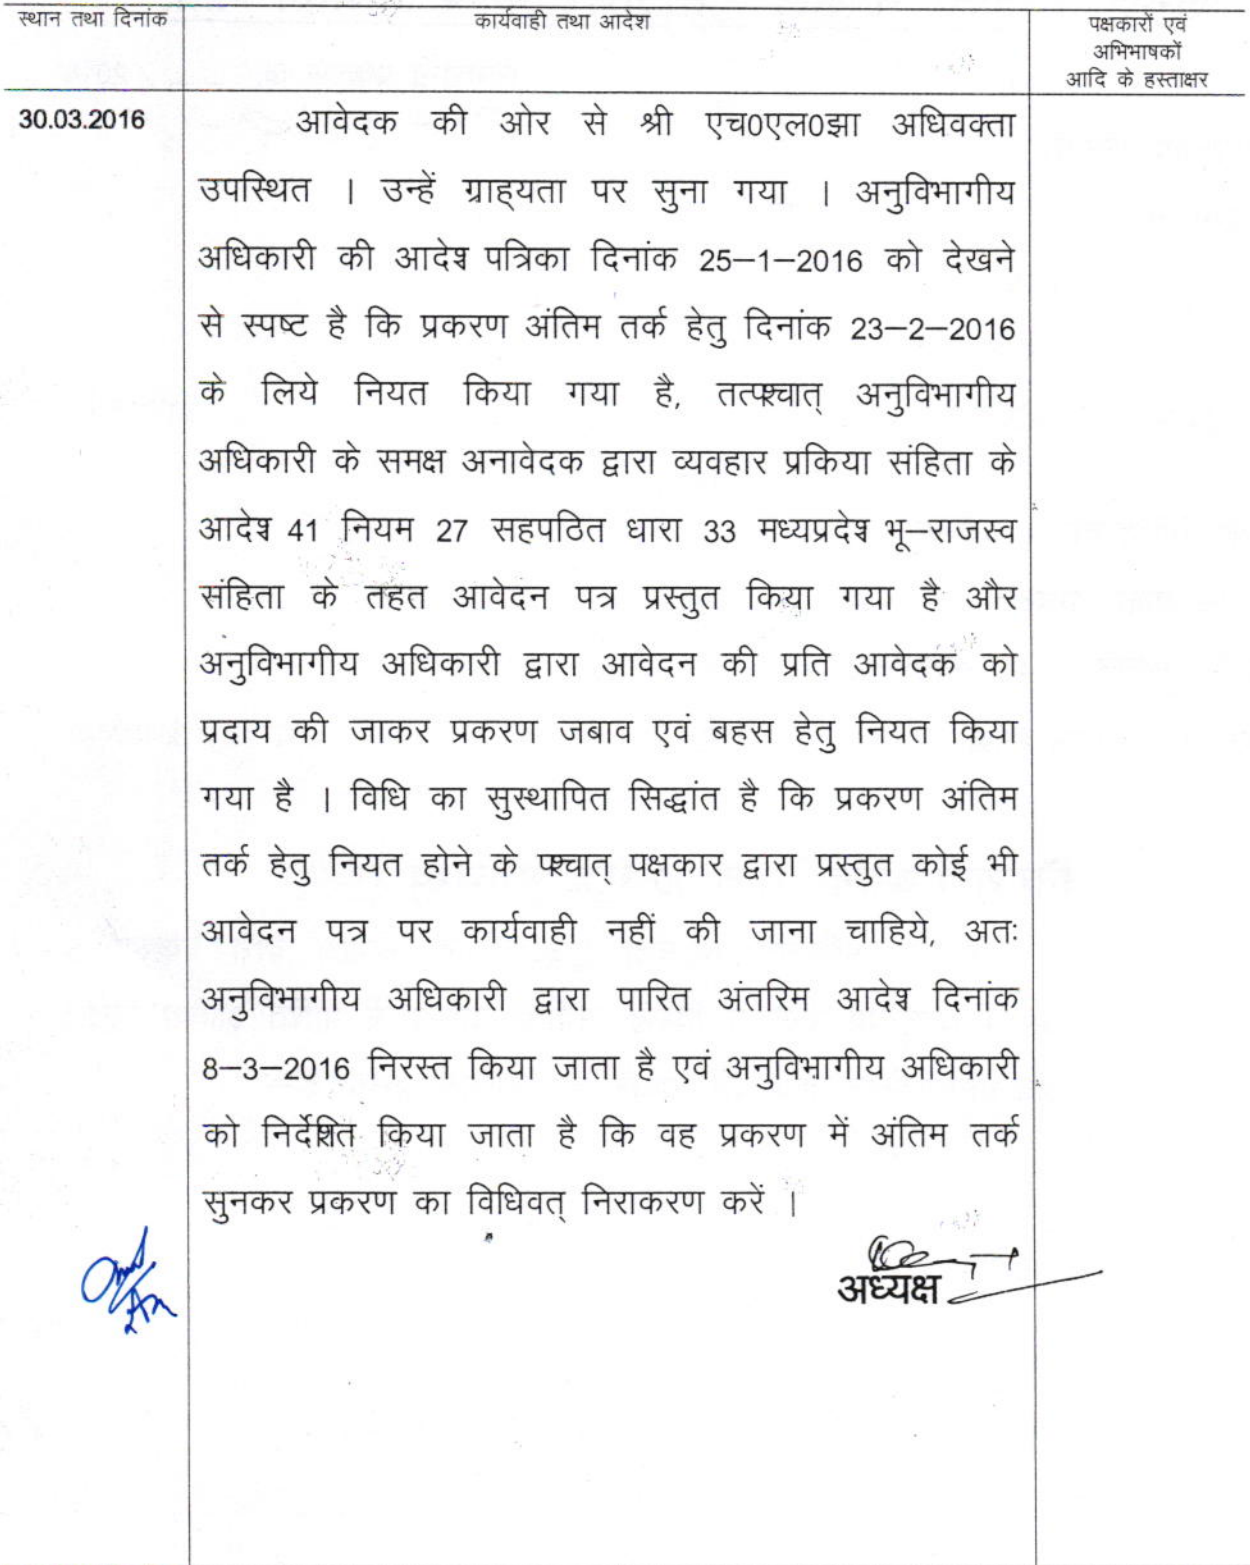 स्थान तथा दिनांक
कार्यवाही तथा आदेश
पक्षकारों एवं
अभिभाषकों
आदि के हस्ताक्षर
30.03.2016
आवेदक की ओर से श्री एच0एल0झा अधिवक्ता
उपस्थित । उन्हें ग्राह्यता पर सुना गया । अनुविभागीय
अधिकारी की आदेश पत्रिका दिनांक 25–1–2016 को देखने
से स्पष्ट है कि प्रकरण अंतिम तर्क हेतु दिनांक 23–2–2016
के लिये नियत किया गया है, तत्पश्चात् अनुविभागीय
अधिकारी के समक्ष अनावेदक द्वारा व्यवहार प्रकिया संहिता के
आदेश 41 नियम 27 सहपठित धारा 33 मध्यप्रदेश भू–राजस्व
संहिता के तहत आवेदन पत्र प्रस्तुत किया गया है और
अनुविभागीय अधिकारी द्वारा आवेदन की प्रति आवेदक को
प्रदाय की जाकर प्रकरण जबाव एवं बहस हेतु नियत किया
गया है । विधि का सुस्थापित सिद्धांत है कि प्रकरण अंतिम
तर्क हेतु नियत होने के पश्चात् पक्षकार द्वारा प्रस्तुत कोई भी
आवेदन पत्र पर कार्यवाही नहीं की जाना चाहिये, अतः
अनुविभागीय अधिकारी द्वारा पारित अंतरिम आदेश दिनांक
8–3–2016 निरस्त किया जाता है एवं अनुविभागीय अधिकारी
को निर्देशित किया जाता है कि वह प्रकरण में अंतिम तर्क
सुनकर प्रकरण का विधिवत् निराकरण करें ।
अध्यक्ष